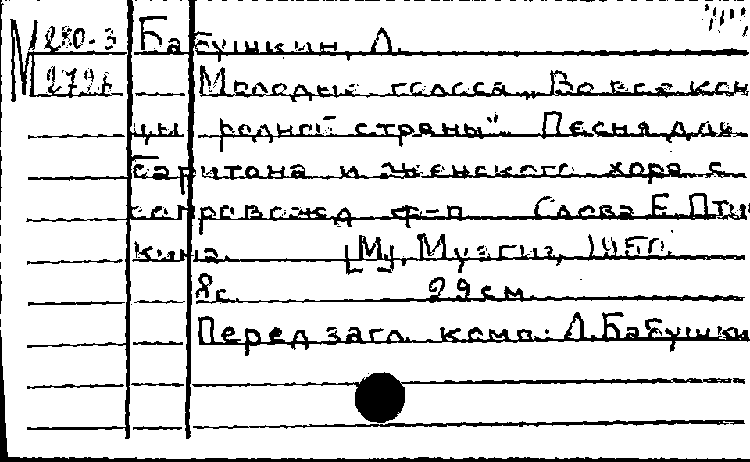 М 280-3 Бабушкин, Л.
Молодые голоса „Во все кон
цы родной страны". Песня для
баритона и женского хора с
сопровожд. ф-п. Слова Е. Пти
кина. [М], Музгиз, 1950.
8с. 29 см.
Перед загл. комп.: Л. Бабушки